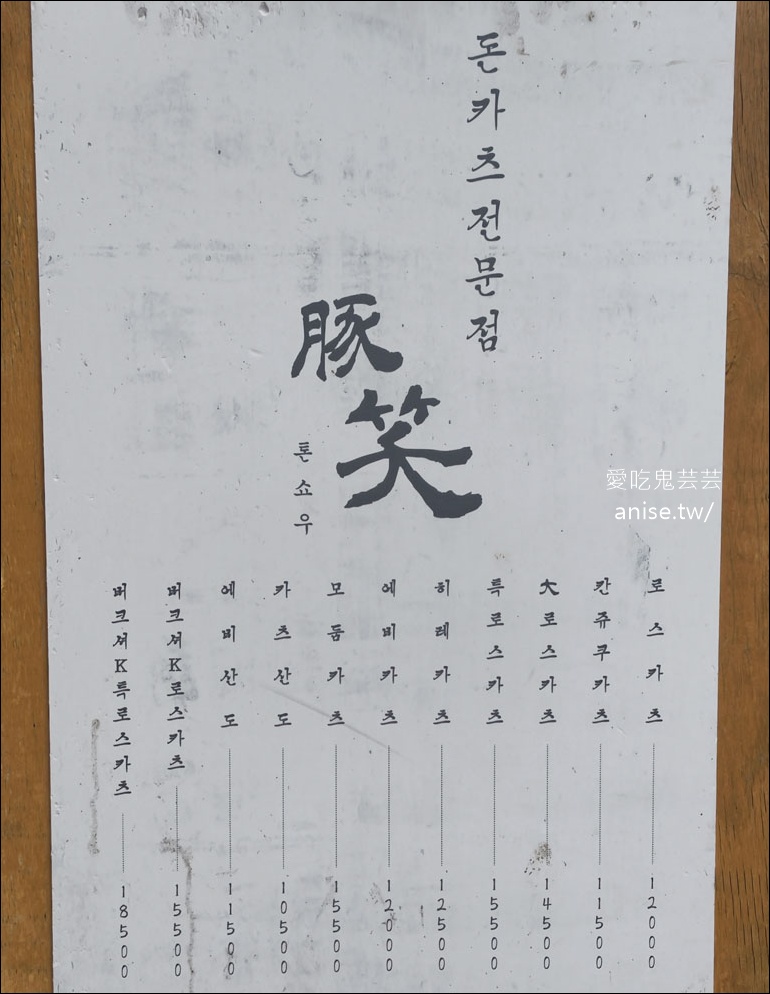 돈카츠전문점
豚笑
톤쇼우
로스카츠 12000
칸쥬쿠카츠 11500
大로스카츠 14500
특로스카츠 15500
히레카츠 12500
에비카츠 12000
모둠카츠 15500
카츠산도 10500
에비산도 11500
버크셔K로스카츠 15500
버크셔K특로스카츠 18500
愛吃鬼芸芸
anise.tw/